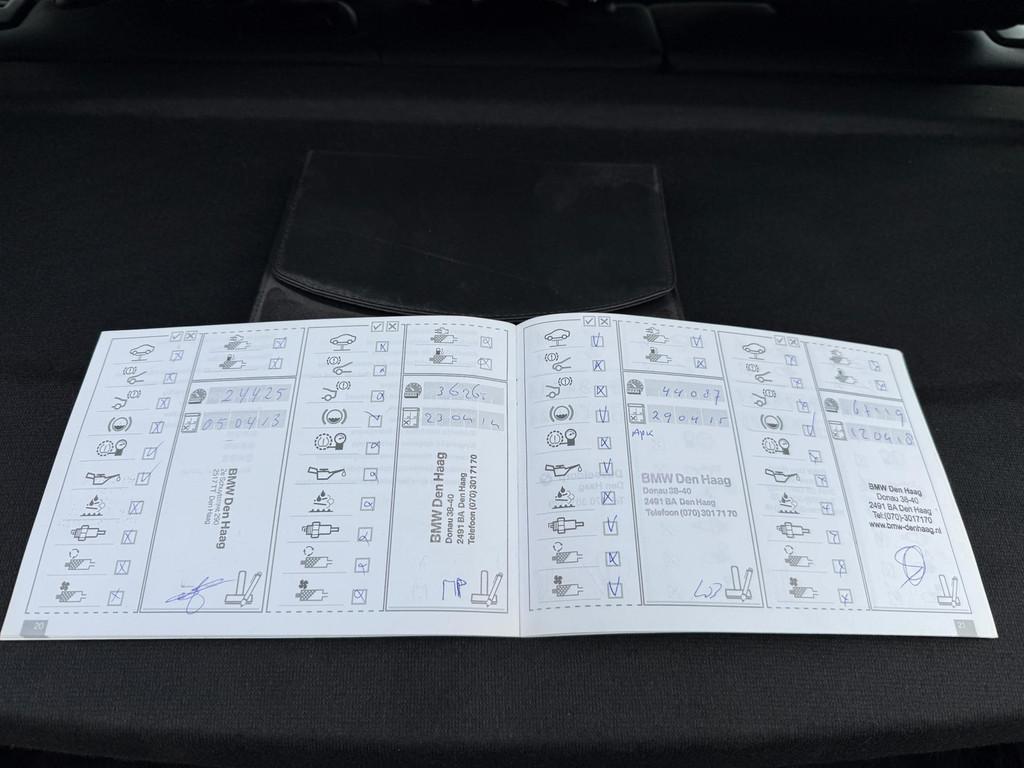 24425
050413
BMW Den Haag
2517 TT Den Haag
20
23 04 14
BMW Den Haag
Donau 38-40
2491 BA Den Haag
Telefoon (070) 301 71 70
ПР
44087
290415
APK
BMW Den Haag
Donau 38-40
2491 BA Den Haag
Telefoon (070) 301 71 70
BMW Den Haag
Donau 38-40
2491 BA Den Haag
Tel:(070)-3017170
www.bmw-denhaag.nl
21